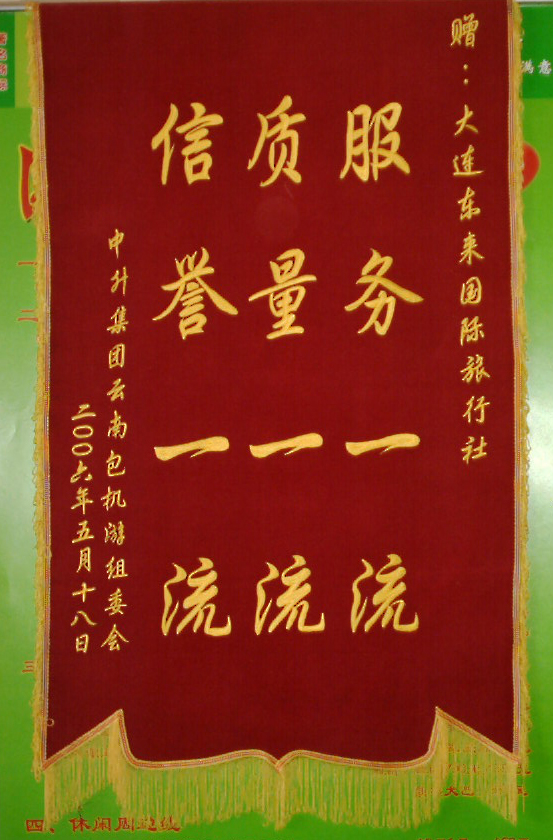 赠：大连东来国际旅行社
服务一流
质量一流
信誉一流
中升集团云南包机游组委会
二〇〇六年五月十八日
满意
四、休闲周边线